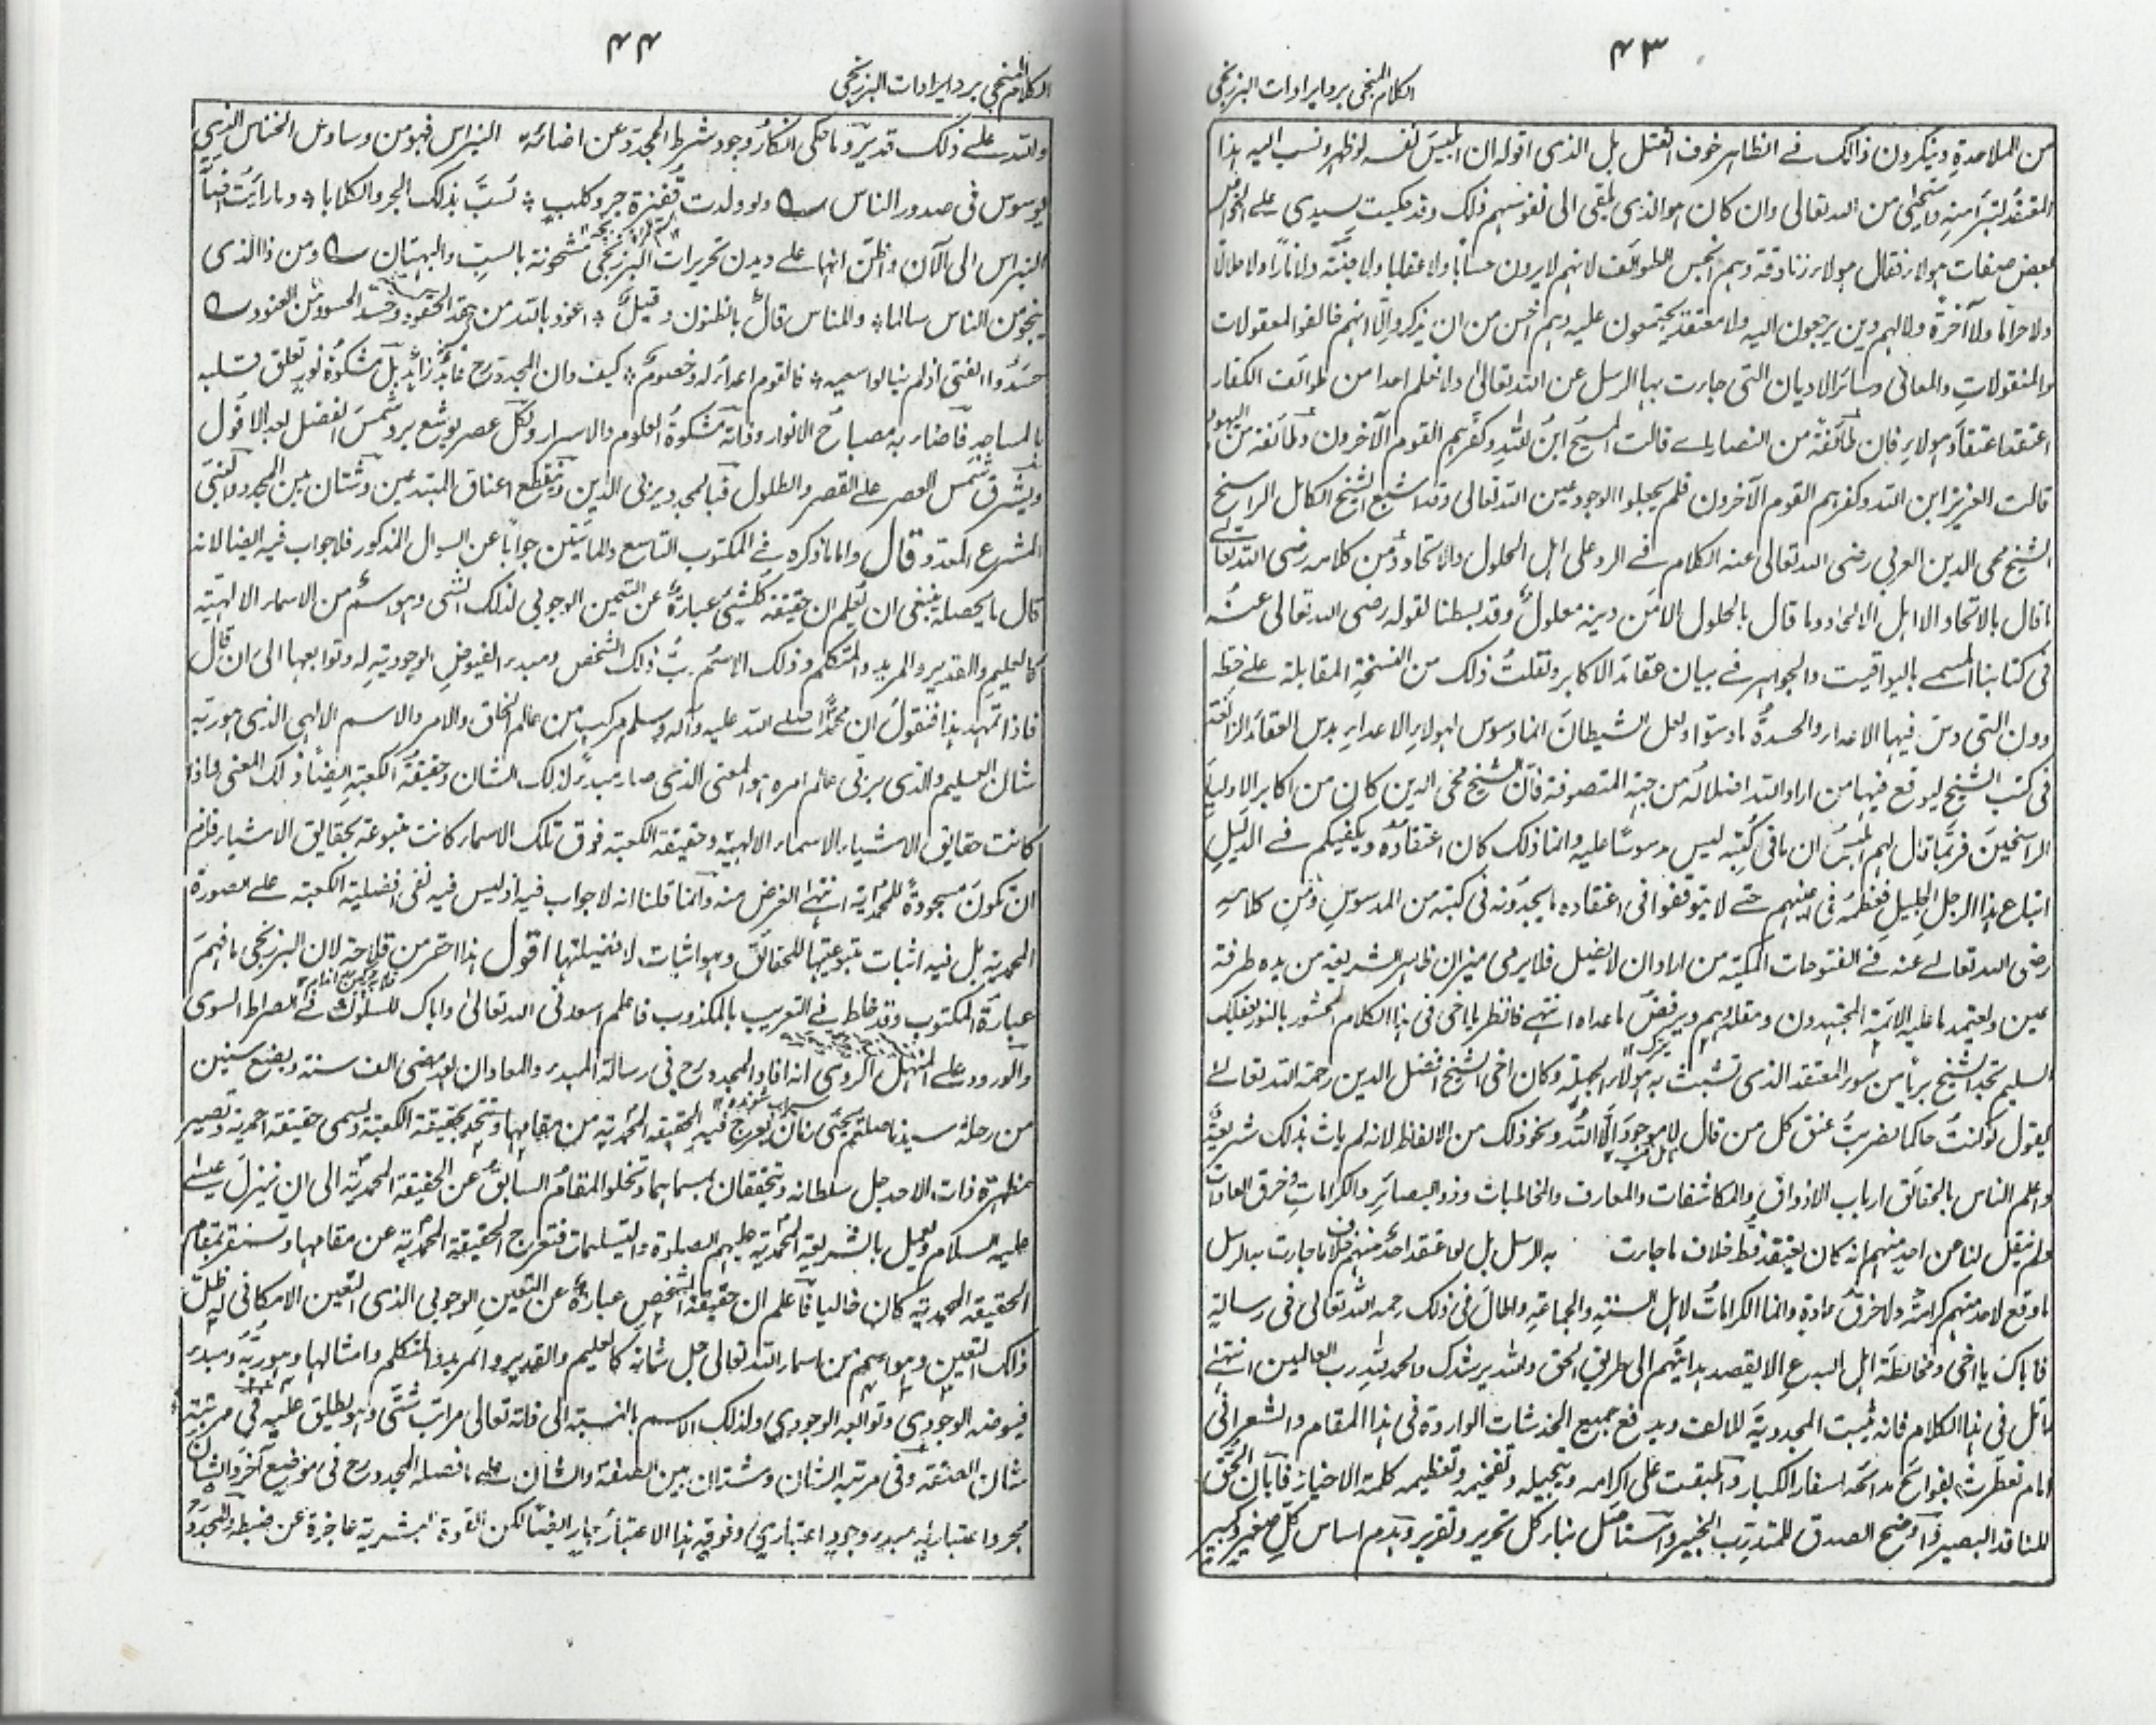 ۴۳
الكلام المنجی برد ایرادات البرزنجی
من الملاحدة وینكرون ذالك فے الظاہر خوف القتل بل الذی اقوله ان ابلیس نفسه لو ظہر ونسب الیه ہذا
المعتقد لتبرأ منه واستحیٰ من اللہ تعالی وان كان ہو الذی یلقی الی نفوسہم ذلك وقد حكیت لسیدی علے الخواص
بعض صفات ہولاء فقال ہولاء زنادقة وہم انجس الطوائف لانہم لا یرون حسابًا ولا عقابا ولا جنّة ولا نارًا ولا حلالًا
ولا حرامًا ولا آخرةً ولا لہم دین یرجعون الیه ولا معتقد یجتمعون علیه وہم اخس من ان یذكروا الّا انہم خالفوا المعقولات
والمنقولاتِ والمعانی وسائر الادیان التی جاءت بہا الرسل عن اللہ تعالیٰ ولا نعلم احدا من طوائف الكفار
اعتقد اعتقادَ ہولاءِ فان طائفةً من النصاریٰ قالت المسیحُ ابنُ اللہِ وكفّرہم القوم الآخرون وطائفة من الیہود
قالت العزیز ابن اللہ وكفرہم القوم الآخرون فلم یجعلوا الوجود عین اللہ تعالی وقد اشبع الشیخ الكامل الراسخ
الشیخ محی الدین العربی رضی اللہ تعالی عنه الكلام فے الرد علی اہل الحلول والاتحاد ومن كلامه رضی اللہ تعالے
ما قال بالاتحاد الا اہل الالحاد وما قال بالحلول الا من دینه معلول وقد بسطنا لقوله رضی اللہ تعالی عنہ
فی كتابنا المسمے بالیواقیت والجواہر فے بیان عقائد الاكابر ونقلتُ ذلك من النسخةِ المقابلة علے خطه
دون التی دسّ فیہا الاعداء والحسدةُ ما دسّوا ولعل الشیطانَ انما وسوس لہولاءِ الاعداءِ بدس العقائد الزائغة
فی كتب الشیخ لیوقع فیہا من اراد اللہ اضلاله من جہة المتصوفة فان الشیخ محی الدین كان من اكابر الاولیاء
الراسخینَ فربّما قال لہم ابلیسُ ان ما فی كتبه لیس مدسوسًا علیه وانما ذلك كان اعتقاده ویكفیكم فے الدلیلِ
اتباع ہذا الرجلِ الجلیلِ فعظمَه فی اعینہم حتے لا یتوقفوا فی اعتقاده ما یجدونه فی كتبه من المدسوسِ ومن كلامه
رضی اللہ تعالے عنه فے الفتوحات المكیة من اراد ان لا یضل فلا یرمی میزان ظاہر الشریعة من یده طرفة
عین ولیعتمد ما علیه الائمة المجتہدون ومقلدوہم ویرفض ما عداه انتہے فانظر یا اخی فی ہذا الكلام المحشور بالنور بعقلك
السلیم تجد الشیخ بریأ من سوء المعتقد الذی تشبث به ہولاء الجہلة وكان اخی الشیخ افضل الدین رحمة اللہ تعالےٰ
یقول لو كنتُ حاكما لضربتُ عنق كل من قال لا موجودَ الا اللہُ ونحو ذلك من الالفاظ لانه لم یات بذلك شریعة
واعلم الناس بالحقائق ارباب الاذواق والمكاشفات والمعارف والمخاطبات وذوو البصائرِ والكراماتِ وخرق العادات
ولم ینقل لنا عن احد منہم انه كان یعتقد قط خلاف ما جاءت به الرسل بل لو اعتقد احد منہم خلاف ما جاءت به الرسل
ما وقع لاحد منہم كرامة ولا خرقُ عادةٍ وانما الكراماتُ لاہل السنةِ والجماعةِ واطال فی ذلك رحمه اللہ تعالیٰ فی رسالة
فایاك یا اخی ومخالطةَ اہل البدعِ الا بقصد ہدایتہم الی طریق الحق واللہ یرشدك والحمد للہ رب العالمین انتہے
تامل فی ہذا الكلام فانه یثبت المجددیةَ للالف ویدفع جمیع الخدشات الواردة فی ہذا المقام والشعرانیُّ
امام تعطرت بفوائح مدائحه اسفار الكبار واطبقت علی اكرامه وتبجیله وتفخیمه وتعظیمه كلمة الاخیار فابان الحق
للناقد البصیر واوضح الصدق للمتدرب الخبیر واستأصل بناء كل تحریر وتقریر وہدم اساس كلِ صغیر وكبیر
۴۴
الكلام المنجی برد ایرادات البرزنجی
واللہ علے ذلك قدیر وما حكی انكارُ وجود شرط المجدد عن اضاءة النبراس فہو من وساوس الخناس الذی
یوسوس فی صدور الناس ولو ولدت قفیزة جرو كلبٍ لسُبَّ بذلك الجرو الكلابا وما رایتُ اضاءة
النبراس الی الآن واظن انہا علے دیدن تحریرات البرزنجی مشحونة بالسبِّ والبہتان ومن ذا الذی
ینجو من الناس سالما وللناس قالٌ بالظنون وقیلٌ اعوذ باللہ من حقد الحقود وحسد الحسود من العنود
حسدوا الفتی اذ لم ینالوا سعیه فالقوم اعداءٌ له وخصومٌ كیف وان المجدد رح ... بل مشكوٰة نور تعلق قلبه
بالمساجد فاضاء به مصباح الانوار وذاته مشكوةُ العلوم والاسرار ولكل عصر یوشع یرد شمسَ الفضل بعد الافول
ویشرق شمس العصر علے القصر والطلول فبالمجدد یزیّن الدین ویقطع اعناق المبتدعین وشتّان بین المجدد ...
المشرع المعتدِ وقال واما ما ذكره فے المكتوب التاسع والمائتین جوابًا عن السوال المذكور فلا جواب فیه ایضا لانه
قال ما یحصله ینبغی ان یعلم ان حقیقة كلِّ شیٍٔ عبارةٌ عن التعین الوجوبی لذلك الشیٔ وہو اسم من الاسماء الالہیة
كالعلیم والقدیر والمرید والمتكلم وذلك الاسم ربُّ ذلك الشخص ومبدء الفیوضِ الوجودیة له وتوابعہا الی ان قال
فاذا تمہد ہذا فنقولُ ان محمدًا صلے اللہ علیه وآله وسلم مركب من عالم الخلق والامر والاسم الالہی الذی ہو ربه
شان العلیم والذی یربی عالم امره ہو المعنی الذی صار مبدءً لذلك الشان وحقیقةُ الكعبةِ ایضًا ذلك المعنی فاذا
كانت حقایق الاشیاء الاسماء الالہیة وحقیقة الكعبة فوق تلك الاسماء كانت متبوعة بحقایق الاشیاء فلزم
ان تكونَ مسجودةً للمحمدیة انتہے الغرض منه وانما قلنا انه لا جواب فیه اذ لیس فیه نفی افضلیة الكعبة علے الصورة
المحمدیة بل فیه اثبات متبوعیتہا للحقائق وہو اثبات لافضیلتہا اقول ہذا احقر من قلامة لان البرزنجی ما فہمَ
عبارةَ المكتوب وقد خلط فے التعریب بالمكذوب فاعلم اسعدنی اللہ تعالیٰ وایاك للسلوك فے الصراط السوی
والورود علے المنہل الروی انه افاد المجدد رح فی رسالة المبدء والمعاد ان بعد مضی الف سنة وبضع سنین
من رحلة سیدنا صلعم یجیٔ زمان یعرج فیه الحقیقة المحمدیة من مقامہا وتتحد بحقیقة الكعبة وتسمی حقیقة احمدیة وتصیر
مظہرة ذات الاحد جل سلطانه وتتحققان بمسماہما وتخلو المقامُ السابقُ عن الحقیقة المحمدیة الی ان ینزل عیسےٰ
علیه السلام ویعمل بالشریعة المحمدیة علیہم الصلوة والتسلیمات فتعرج الحقیقة المحمدیة عن مقامہا وتستقر بمقام
الحقیقة المحمدیة كان خالیا فاعلم ان حقیقة الشخص عبارةٌ عن التعین الوجوبی الذی التعین الامكانی له ظل
ذلك التعین وہو اسم من اسماء اللہ تعالی جل شانه كالعلیم والقدیر والمرید والمتكلم وامثالہا وہو ربه ومبدء
فیوضه الوجودی وتوابعه الوجودی ولذلك الاسم بالنسبة الی ذاته تعالی مراتب شتّی وہو یطلق علیه فی مرتبة
شان الصفة وفی مرتبة الشان وشتان بین الصفة والشان علے ما فصله المجدد رح فی موضع آخر والشان
مجرد اعتبار له مبدء وجود اعتباری وفوق ہذا الاعتبار اعتبار ایضًا لكن القوة البشریة عاجزة عن ضبطه والمجددُ